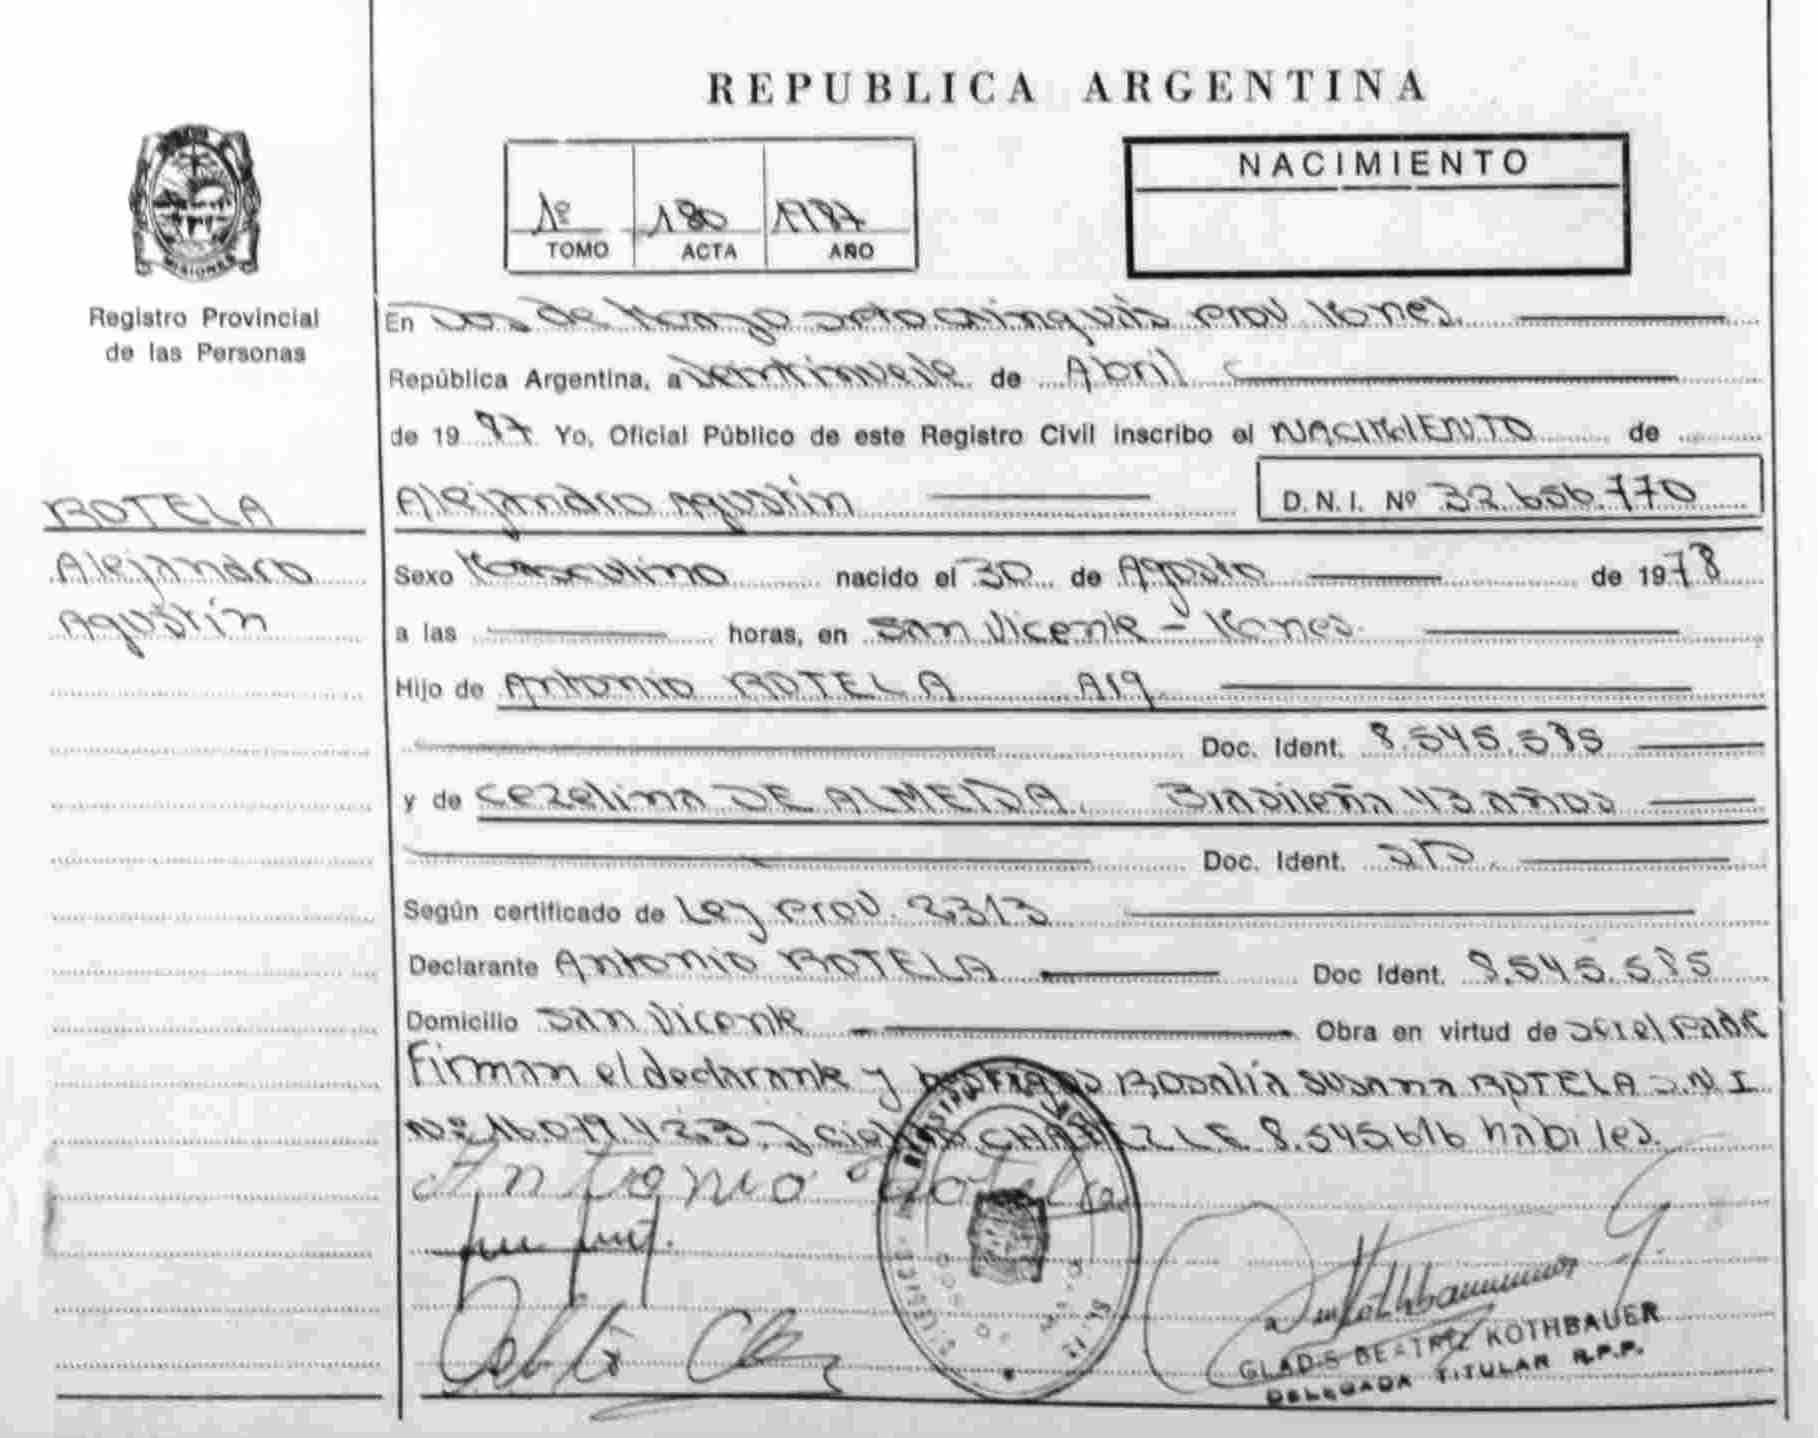 REPUBLICA ARGENTINA
NACIMIENTO
1º 180 1987
TOMO ACTA AÑO
MISIONES
Registro Provincial
de las Personas
En Dos de Marzo Dpto prov. Mones.
República Argentina, a veintinueve de Abril
de 19 87 Yo, Oficial Público de este Registro Civil inscribo el NACIMIENTO de
ROTELA
Alejandro Agustín
D.N.I. Nº 32.656.770
Alejandro
Agustín
Sexo Masculino nacido el 30 de Agosto de 1978
a las horas, en San Vicente - Mones.
Hijo de Antonio ROTELA Arg.
Doc. Ident. 8.545.585
y de Cezelina DE ALMEIDA. Brasileña 43 años
Doc. Ident.
Según certificado de Ley prov. 2313
Declarante Antonio ROTELA Doc Ident. 8.545.585
Domicilio San Vicente Obra en virtud de ser el padre
Firman el declarante y testigos Rosalía Susana ROTELA D.N.I
Nº 16.079.423 y L.E. 8.545616 hábiles.
Antonio Rotela
GLADIS BEATRIZ KOTHBAUER
DELEGADA TITULAR R.P.P.